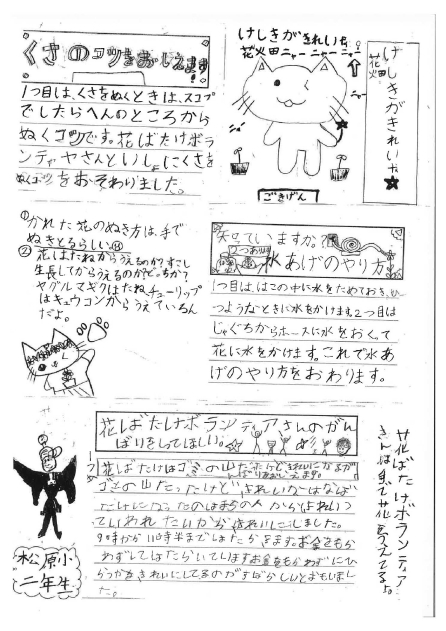 くさのコツをおしえます
1つ目は、くさをぬくときは、スコプ
でしたらへんのところから
ぬくコツです。花ばたけボラ
ンティヤさんといっしょにくさを
ぬくコツをおそわりました。
けしきがきれいだ
花火田ニャーニャーニャー
ごきげん
けしきがきれいや
花火田
①かれた花のぬき方は、手で
ぬきとるらしい。
②花はたねからうえるのか?すこし
生長してからうえるのかど。ちか?
ヤグルマギクはたね、チューリップ
はキュウコンからうえているん
だよ。
知っていますか。?
2つあり
水あげのやり方
1つ目は、はこの中に水をためておき、ひ
つようなときに水をかけます。2つ目は
じゃぐちからホースに水をおくって
花に水をかけます。これで水あ
げのやり方をおわります。
花ばたけボランティアさんのがん
ばりをしってほしい。
花ばたけはゴミの山だったけど
ゴミの山だったけど、きれいなはなば
たけになったのはまちの人からよれいっ
ていわれたいからきれいにしました。
9時から11時半まではたらきます。お金をもら
わずしてはたらいています
松原小
二年生
花ばたけボランティア